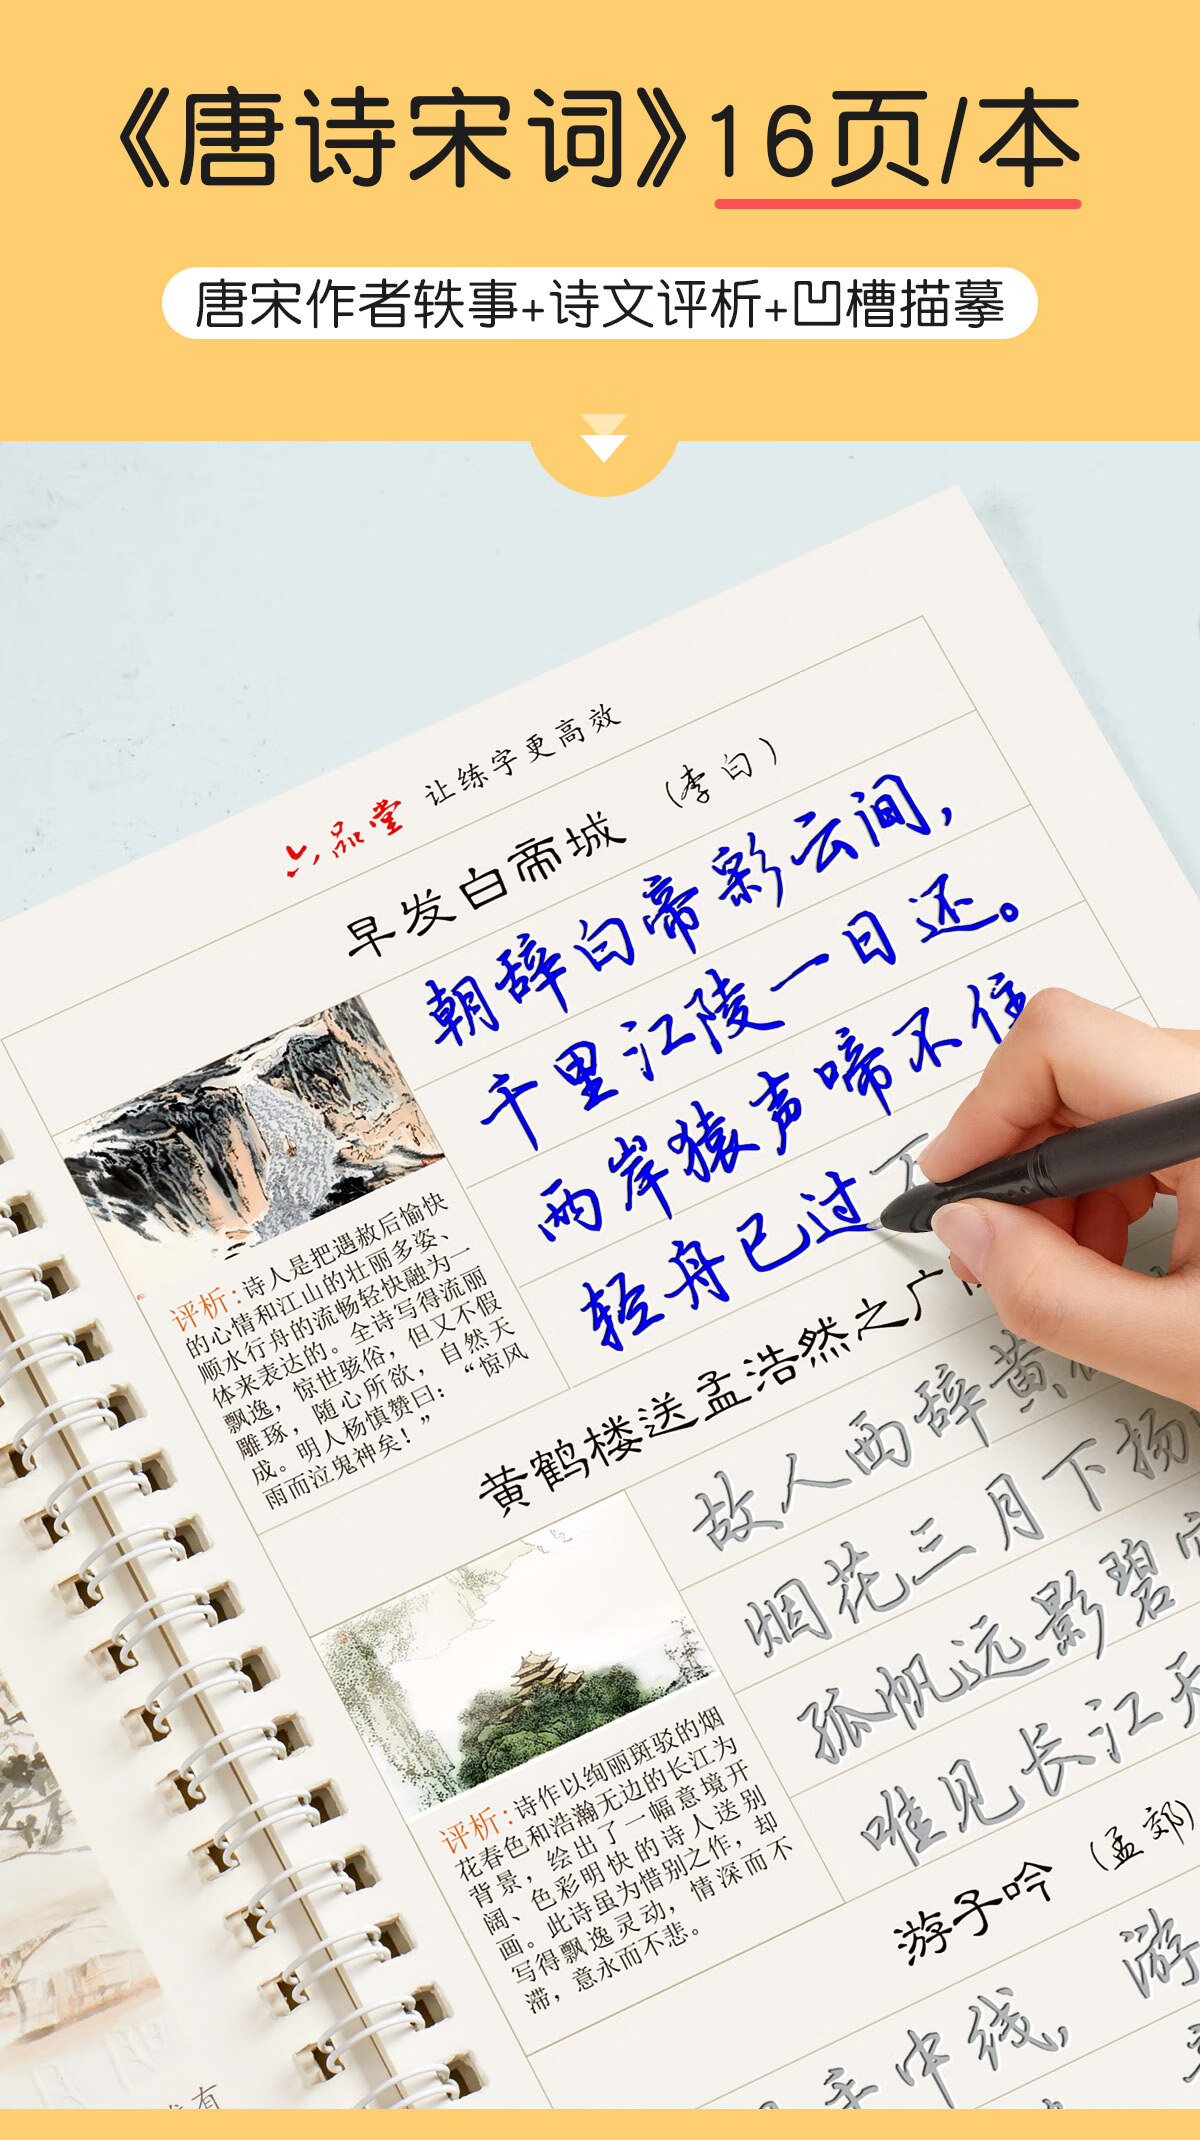 《唐诗宋词》16页/本
唐宋作者轶事+诗文评析+凹槽描摹
六品堂 让练字更高效
早发白帝城 (李白)
朝辞白帝彩云间,
千里江陵一日还。
两岸猿声啼不住
轻舟已过
评析:诗人是把遇赦后愉快
的心情和江山的壮丽多姿、
顺水行舟的流畅轻快融为一
体来表达的。全诗写得流丽
飘逸,惊世骇俗,但又不假
雕琢,随心所欲,自然天
成。明人杨慎赞曰:“惊风
雨而泣鬼神矣!”
黄鹤楼送孟浩然之广
故人西辞黄
烟花三月下扬
孤帆远影碧空
唯见长江天
评析:诗作以绚丽斑驳的烟
花春色和浩瀚无边的长江为
背景,绘出了一幅意境开
阔、色彩明快的诗人送别
画。此诗虽为惜别之作,却
写得飘逸灵动,情深而不
滞,意永而不悲。
游子吟 (孟郊)
手中线,
游
有